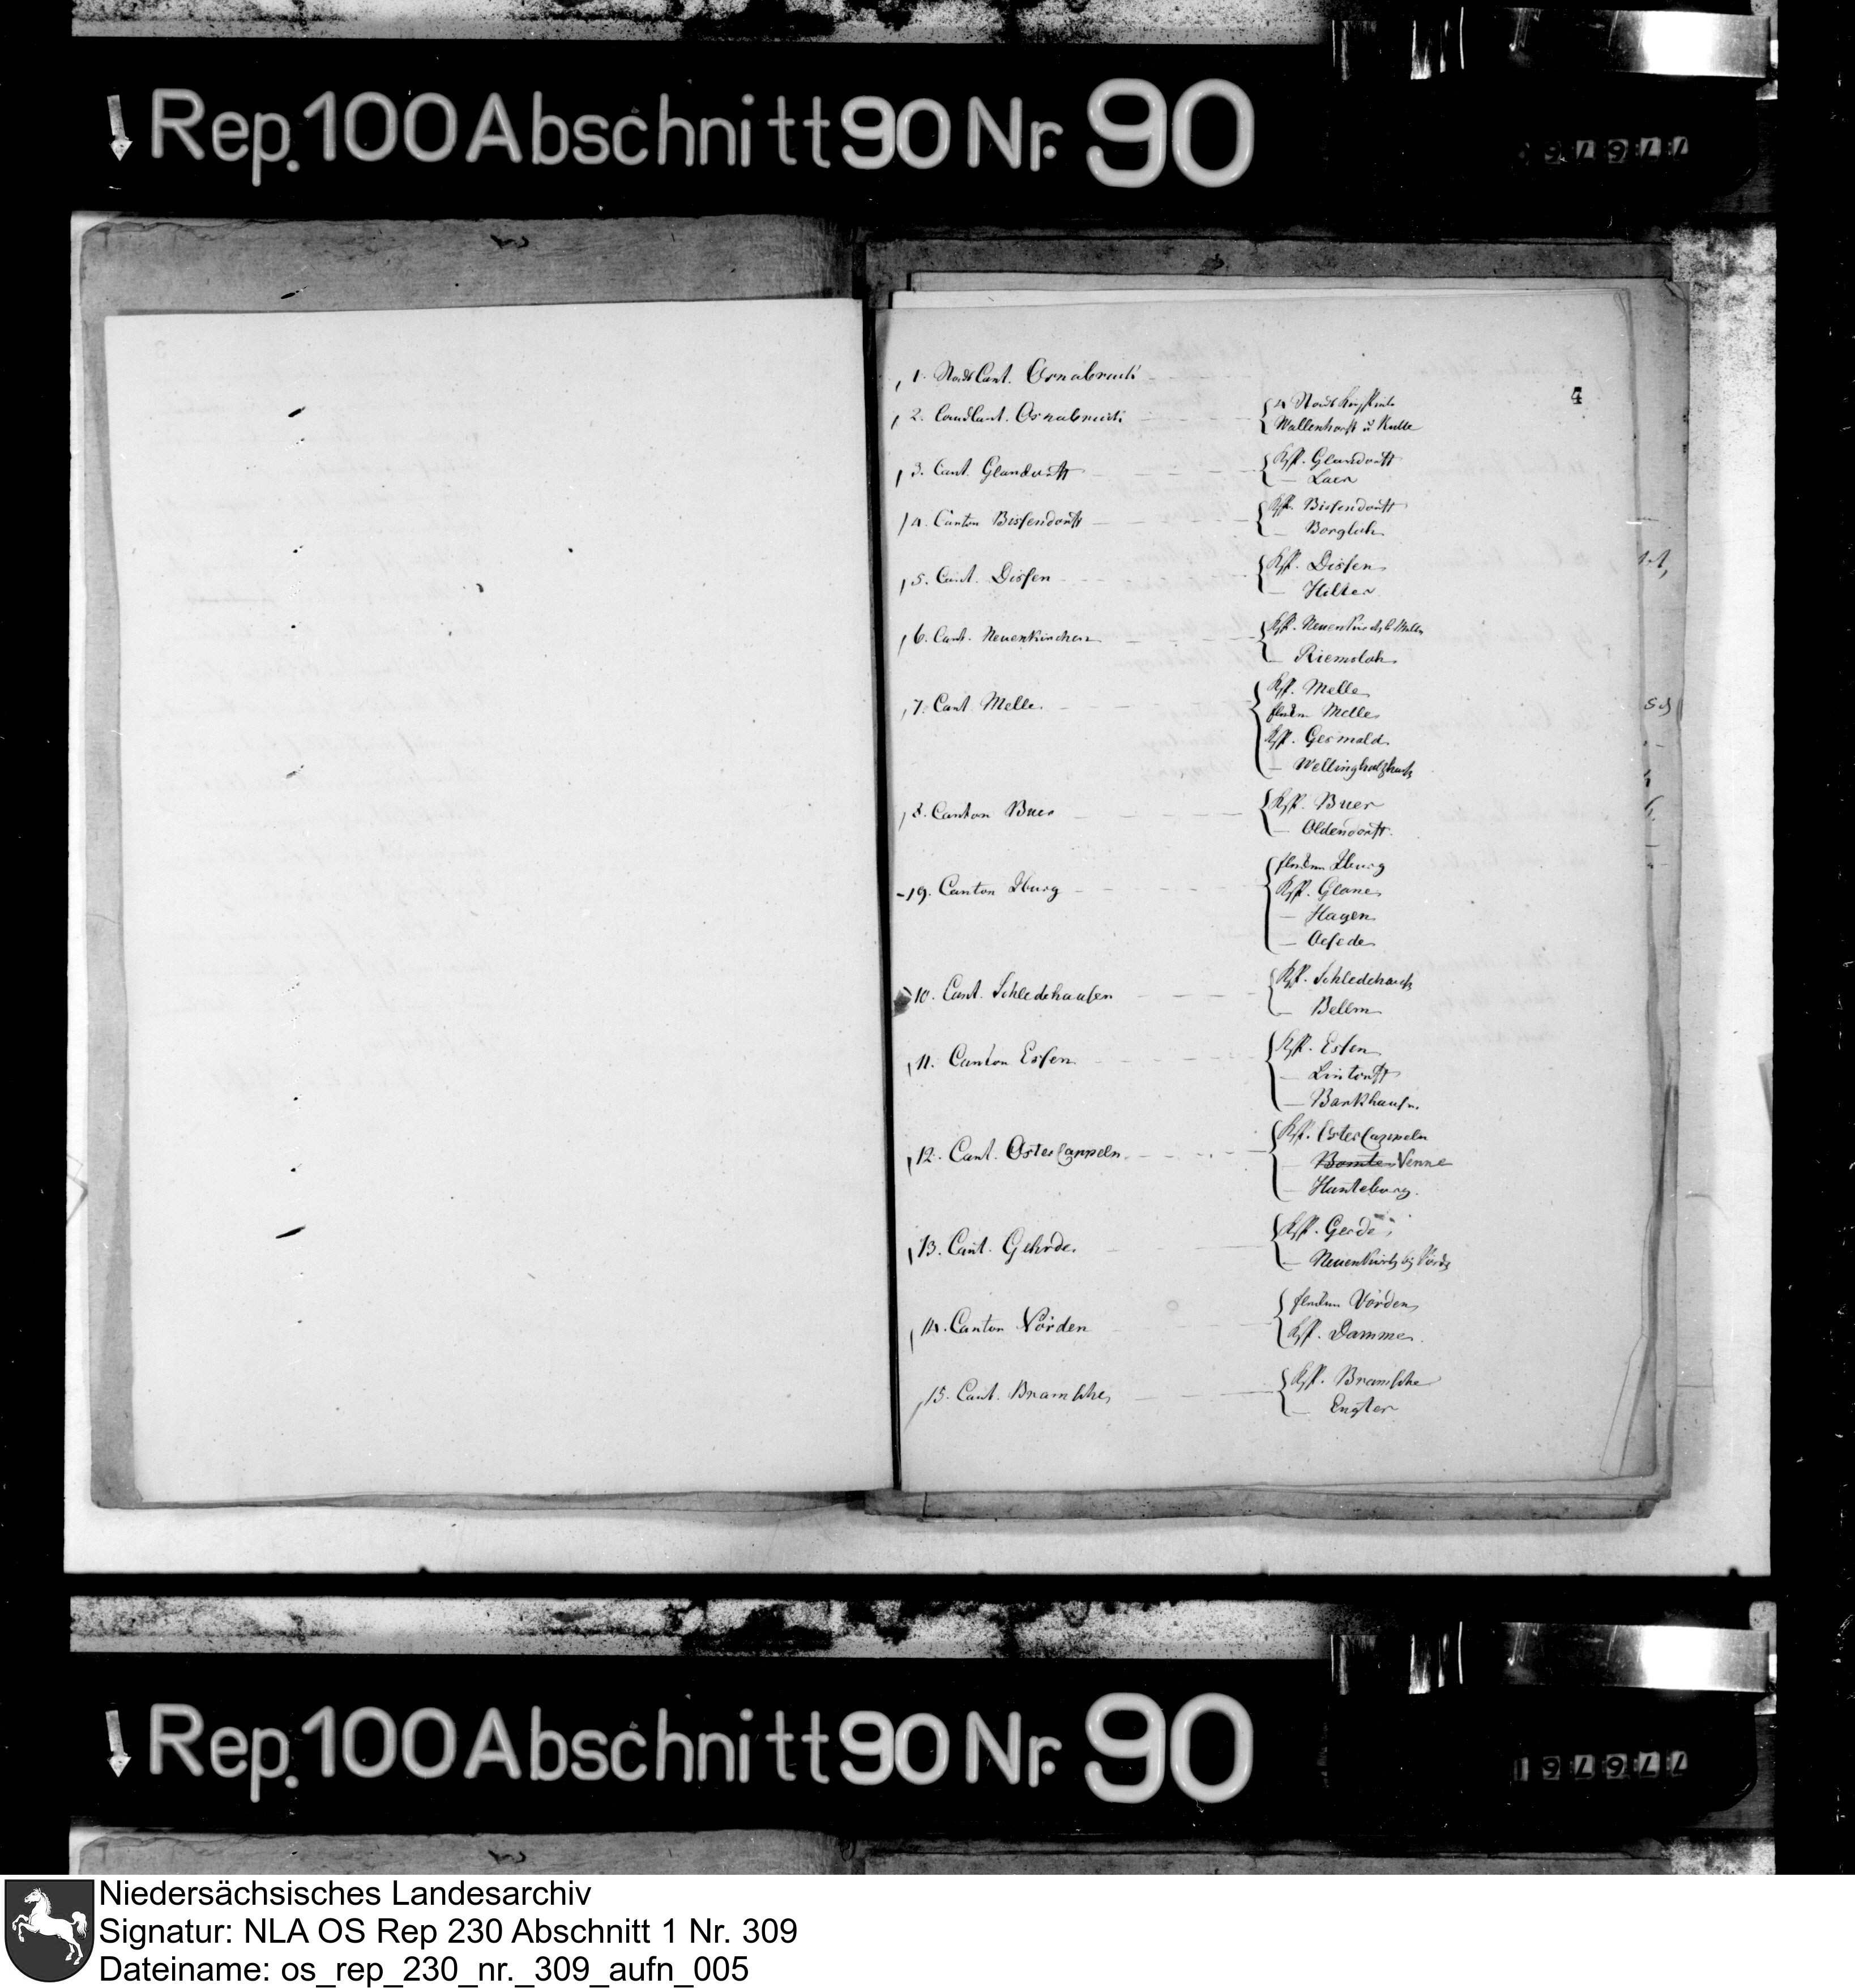 Rep. 100 Abschnitt 90 Nr. 90
4
1. Stadt Cant. Osnabrück
2. Land Cant. Osnabrück
4 Stadt Kirchspiele
Wallenhorst u Rulle
3. Cant. Glandorff
Kspl. Glandorff
— Laer
4. Canton Bissendorff
Kspl. Bissendorff
— Borgloh
5. Cant. Dissen
Kspl. Dissen
— Hilter
6. Cant. Neuenkirchen
Kspl. Neuenkirch b Melle
— Riemsloh
7. Cant. Melle
Kspl. Melle
flecken Melle
Kspl. Gesmold
— Wellingholzhaus
8. Canton Buer
Kspl. Buer
— Oldendorff.
9. Canton Iburg
flecken Iburg
Kspl. Glane
— Hagen
— Oesede
10. Cant. Schledehausen
Kspl. Schledehaus
— Belem
11. Canton Essen
Kspl. Essen
— Lintorff
— Barkhausen
12. Cant. OsterCappeln
Kspl. OsterCappeln
— Bomte Venne
— Hunteburg.
13. Cant. Gehrde.
Kspl. Gerde
— Neuenkirch bey Vörd
14. Canton Vörden
flecken Vörden
Kspl. Damme.
15. Cant. Bramsche
Kspl. Bramsche
— Engter
Rep. 100 Abschnitt 90 Nr. 90
Niedersächsisches Landesarchiv
Signatur: NLA OS Rep 230 Abschnitt 1 Nr. 309
Dateiname: os_rep_230_nr._309_aufn_005